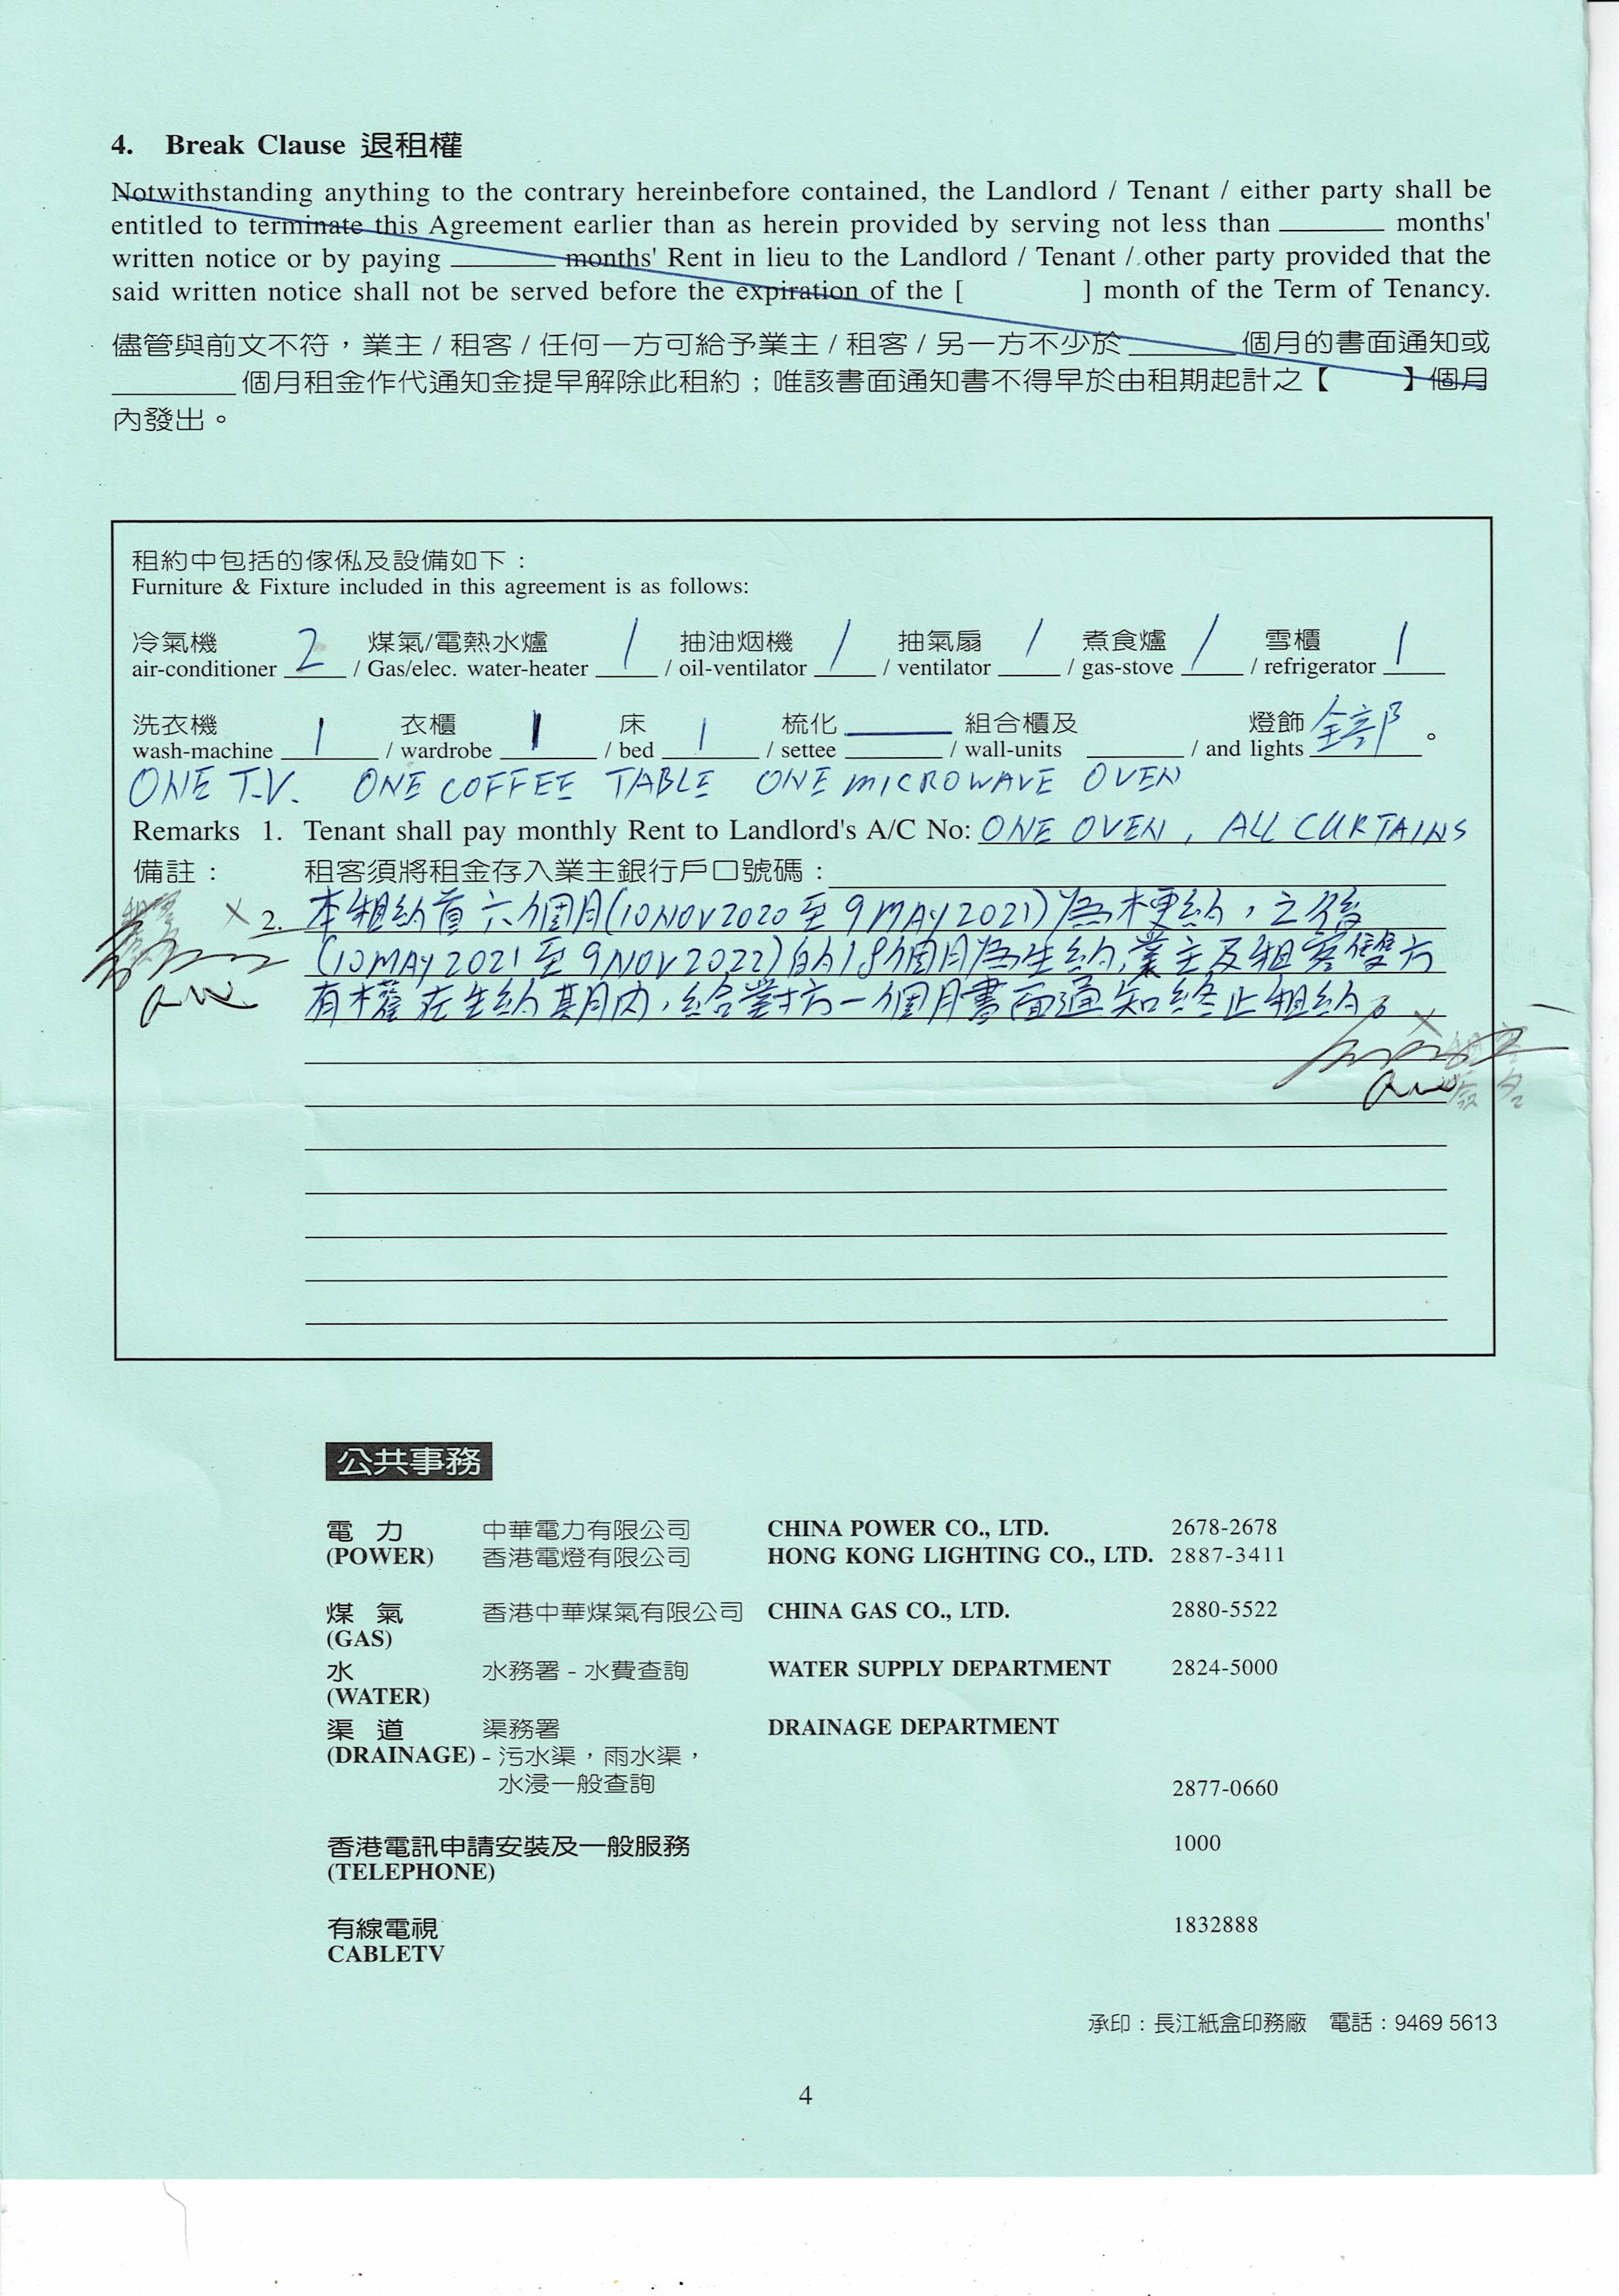 4. Break Clause 退租權
Notwithstanding anything to the contrary hereinbefore contained, the Landlord / Tenant / either party shall be
entitled to terminate this Agreement earlier than as herein provided by serving not less than ________ months'
written notice or by paying ________ months' Rent in lieu to the Landlord / Tenant / other party provided that the
said written notice shall not be served before the expiration of the [ ] month of the Term of Tenancy.
儘管與前文不符，業主 / 租客 / 任何一方可給予業主 / 租客 / 另一方不少於________個月的書面通知或
________個月租金作代通知金提早解除此租約；唯該書面通知書不得早於由租期起計之【 】個月
內發出。
租約中包括的傢俬及設備如下：
Furniture & Fixture included in this agreement is as follows:
冷氣機 2 煤氣/電熱水爐 1 抽油烟機 1 抽氣扇 1 煮食爐 1 雪櫃 1
air-conditioner ____ / Gas/elec. water-heater ____ / oil-ventilator ____ / ventilator ____ / gas-stove ____ / refrigerator ____
洗衣機 1 衣櫃 1 床 1 梳化 —— 組合櫃及 燈飾 全部。
wash-machine ____ / wardrobe ____ / bed ____ / settee ____ / wall-units ____ / and lights ____
ONE T.V. ONE COFFEE TABLE ONE MICROWAVE OVEN
Remarks 1. Tenant shall pay monthly Rent to Landlord's A/C No: ONE OVEN, ALL CURTAINS
備註： 租客須將租金存入業主銀行戶口號碼：
X 2. 本租約首六個月(10 NOV 2020 至 9 MAY 2021)為梗約，之後
(10 MAY 2021 至 9 NOV 2022)的18個月為生約，業主及租客雙方
有權在生約期內，給對方一個月書面通知終止租約。
公共事務
電 力 中華電力有限公司 CHINA POWER CO., LTD. 2678-2678
(POWER) 香港電燈有限公司 HONG KONG LIGHTING CO., LTD. 2887-3411
煤 氣 香港中華煤氣有限公司 CHINA GAS CO., LTD. 2880-5522
(GAS)
水 水務署 - 水費查詢 WATER SUPPLY DEPARTMENT 2824-5000
(WATER)
渠 道 渠務署 DRAINAGE DEPARTMENT
(DRAINAGE) - 污水渠，雨水渠，
水浸一般查詢 2877-0660
香港電訊申請安裝及一般服務 1000
(TELEPHONE)
有線電視 1832888
CABLETV
承印：長江紙盒印務廠 電話：9469 5613
4